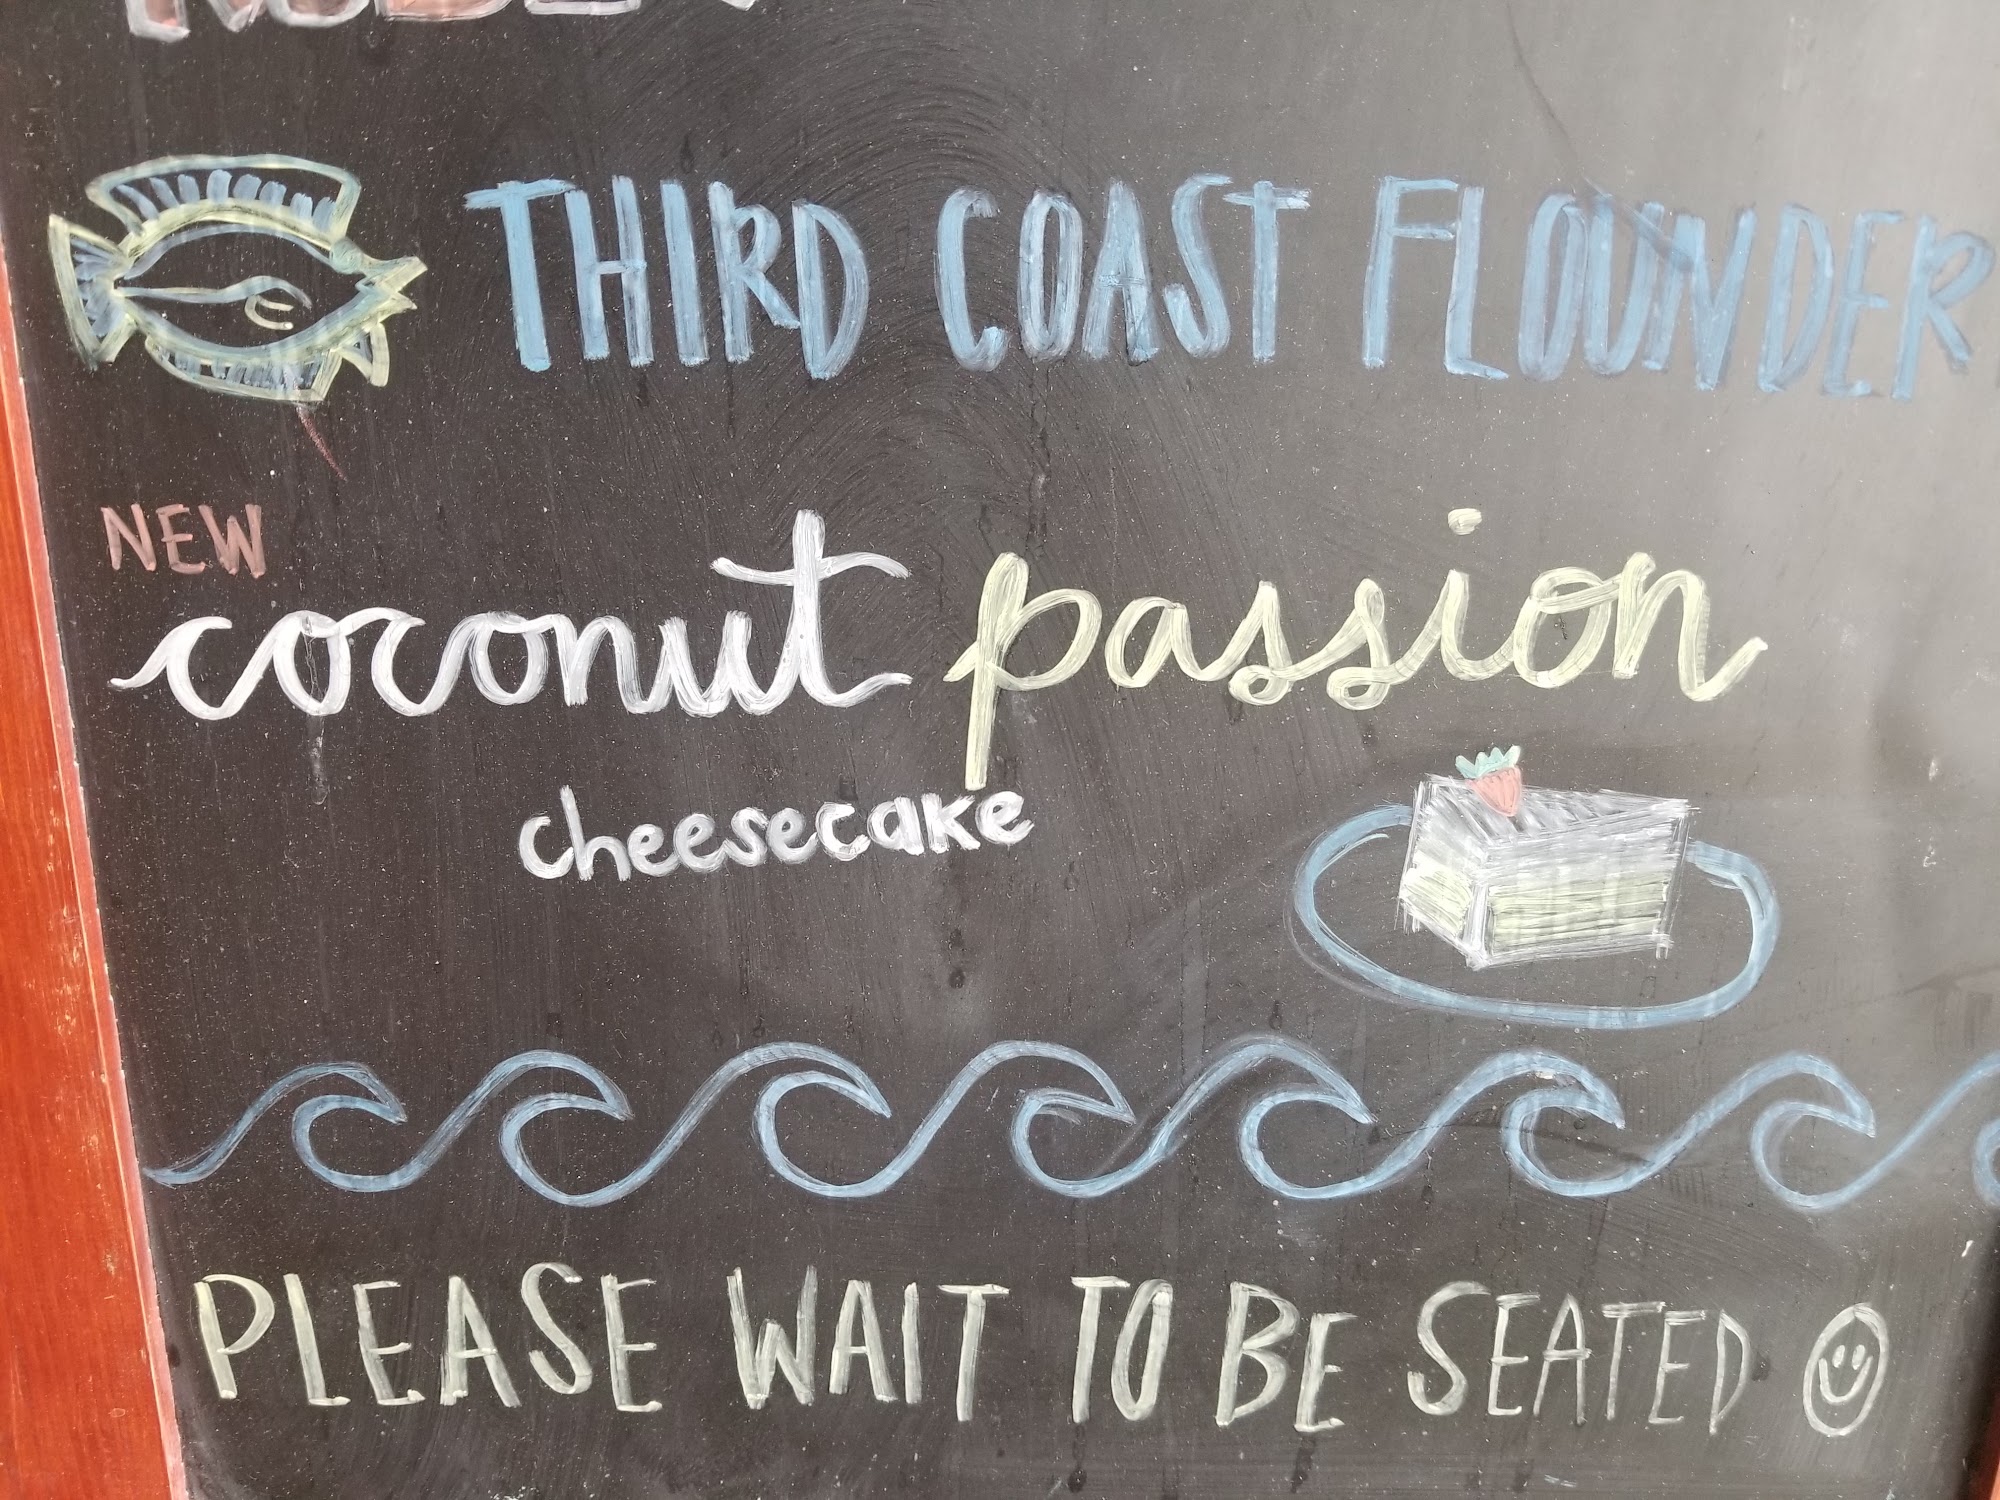 THIRD COAST FLOUNDER
NEW
coconut passion
cheesecake
PLEASE WAIT TO BE SEATED